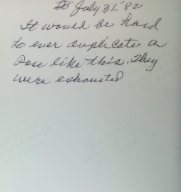 July 31, '82
It would be hard
to ever duplicate a
Pose like this. They
were exhausted